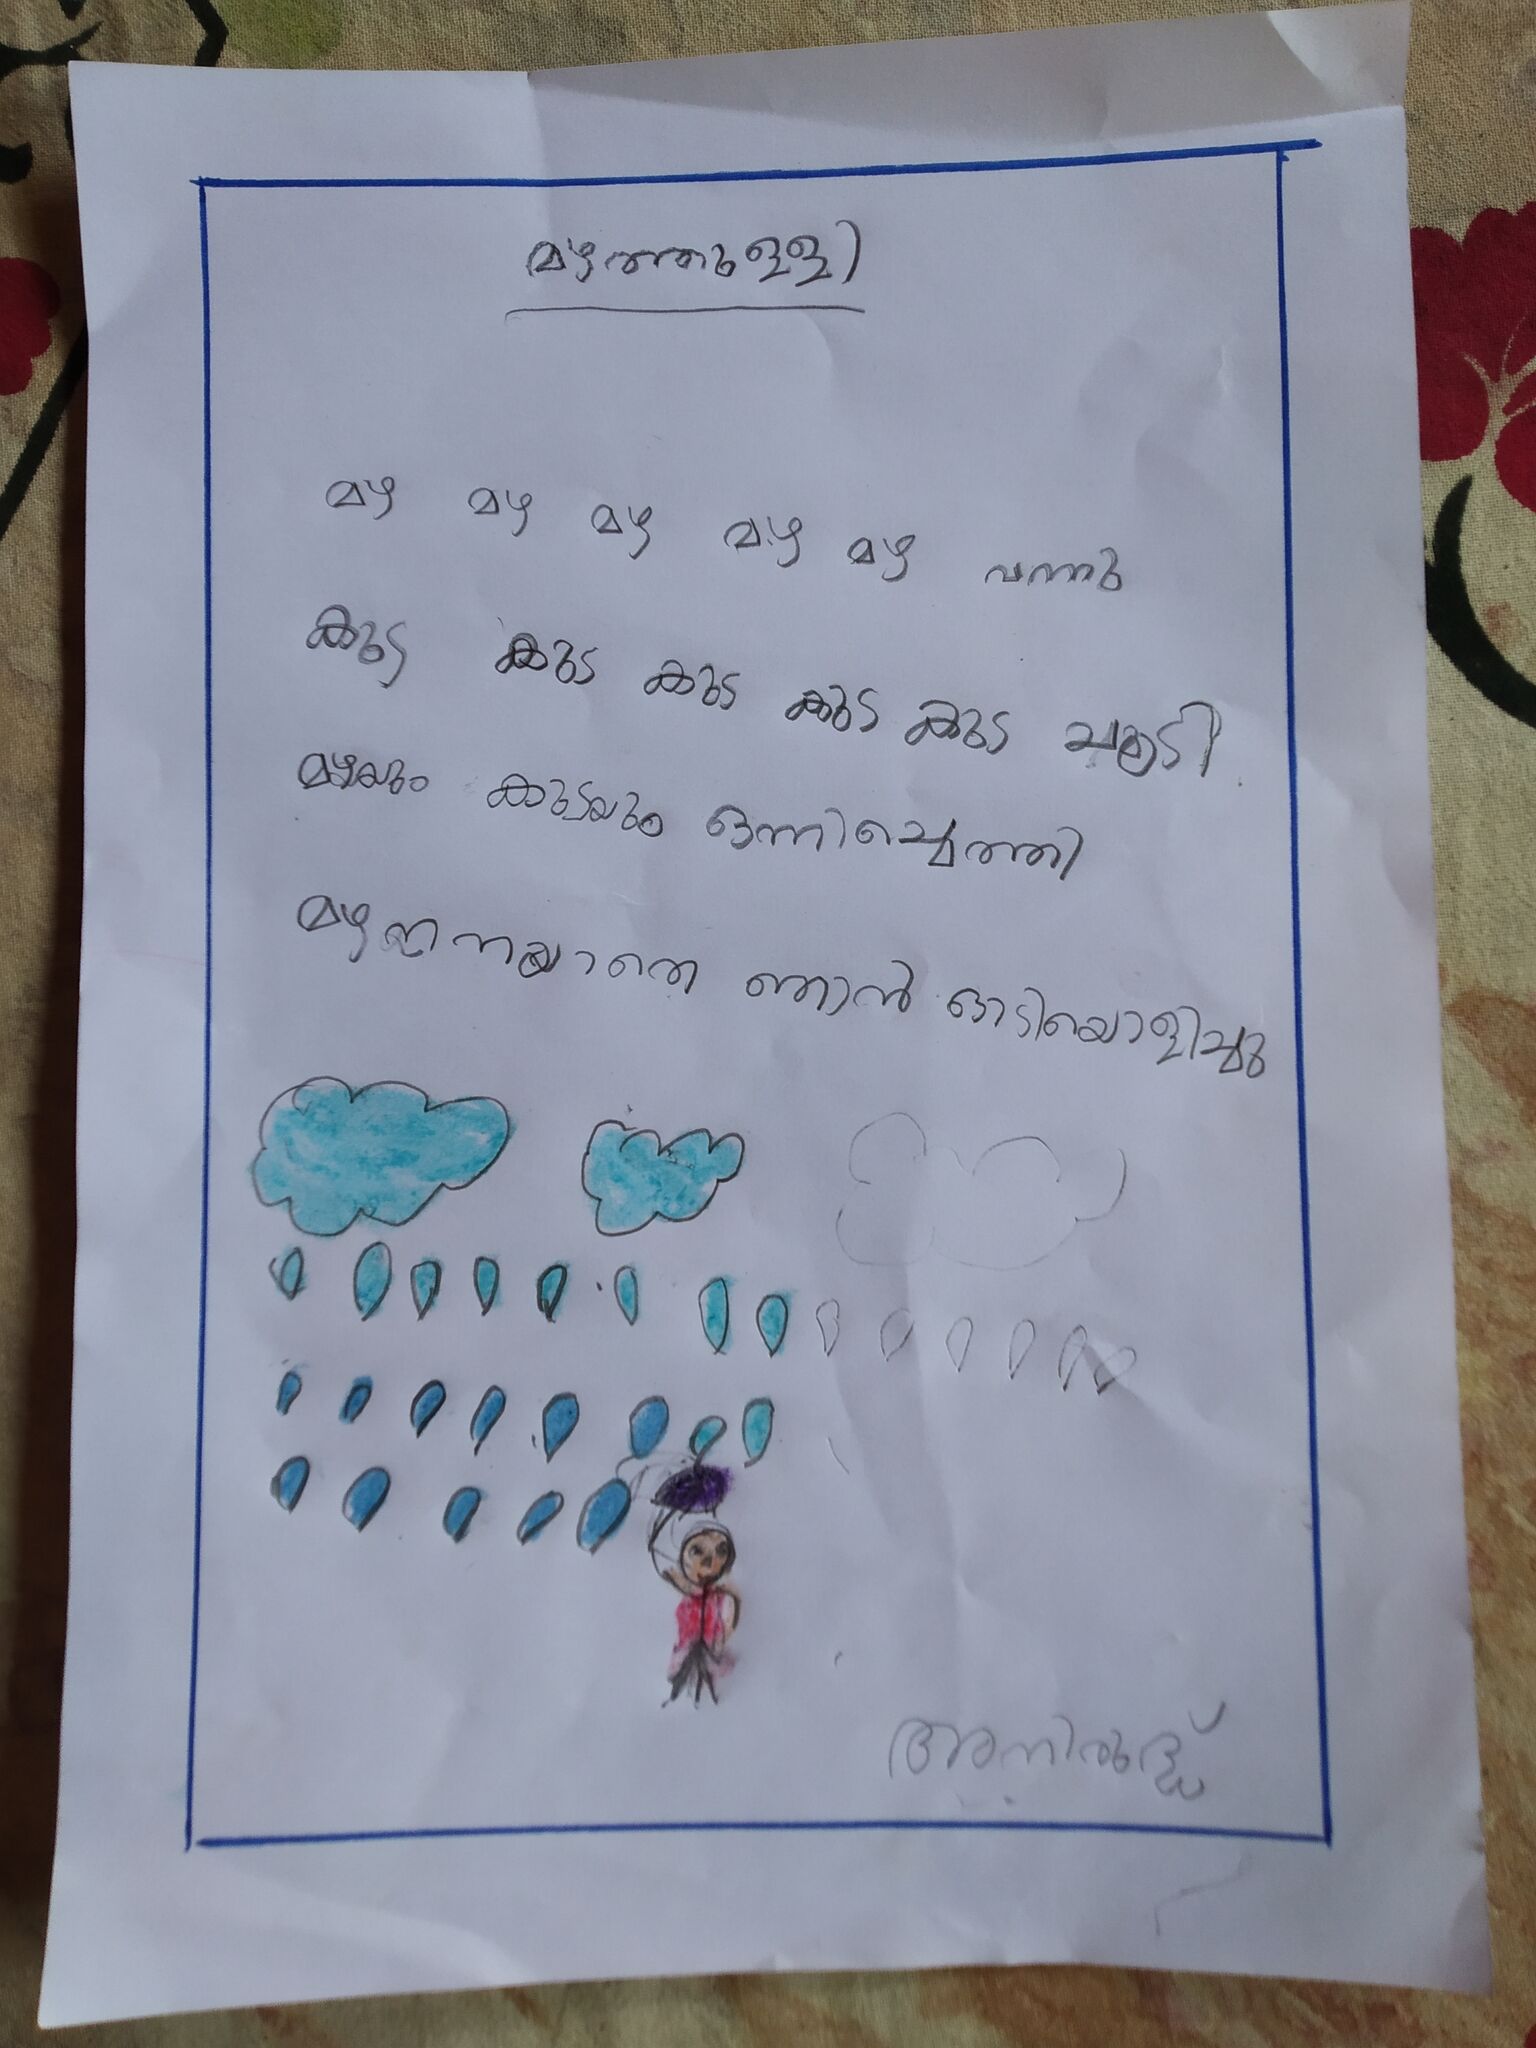 മഴത്തുള്ളി
മഴ മഴ മഴ മഴ മഴ വന്നു
കുട കുട കുട കുട കുട ചൂടി
മഴയും കുടയും ഒന്നിച്ചെത്തി
മഴ നനയാതെ ഞാൻ ഓടിയൊളിച്ചു
അനിരുദ്ധ്